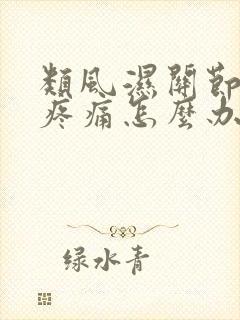 類風濕關節
疼痛怎麼办
绿水青